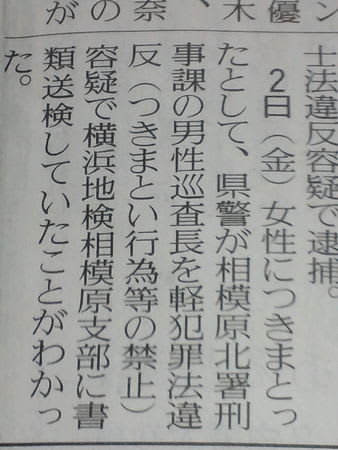 ン
優
木
、
奈
の
が
士法違反容疑で逮捕。
2日（金）女性につきまとっ
たとして、県警が相模原北署刑
事課の男性巡査長を軽犯罪法違
反（つきまとい行為等の禁止）
容疑で横浜地検相模原支部に書
類送検していたことがわかっ
た。